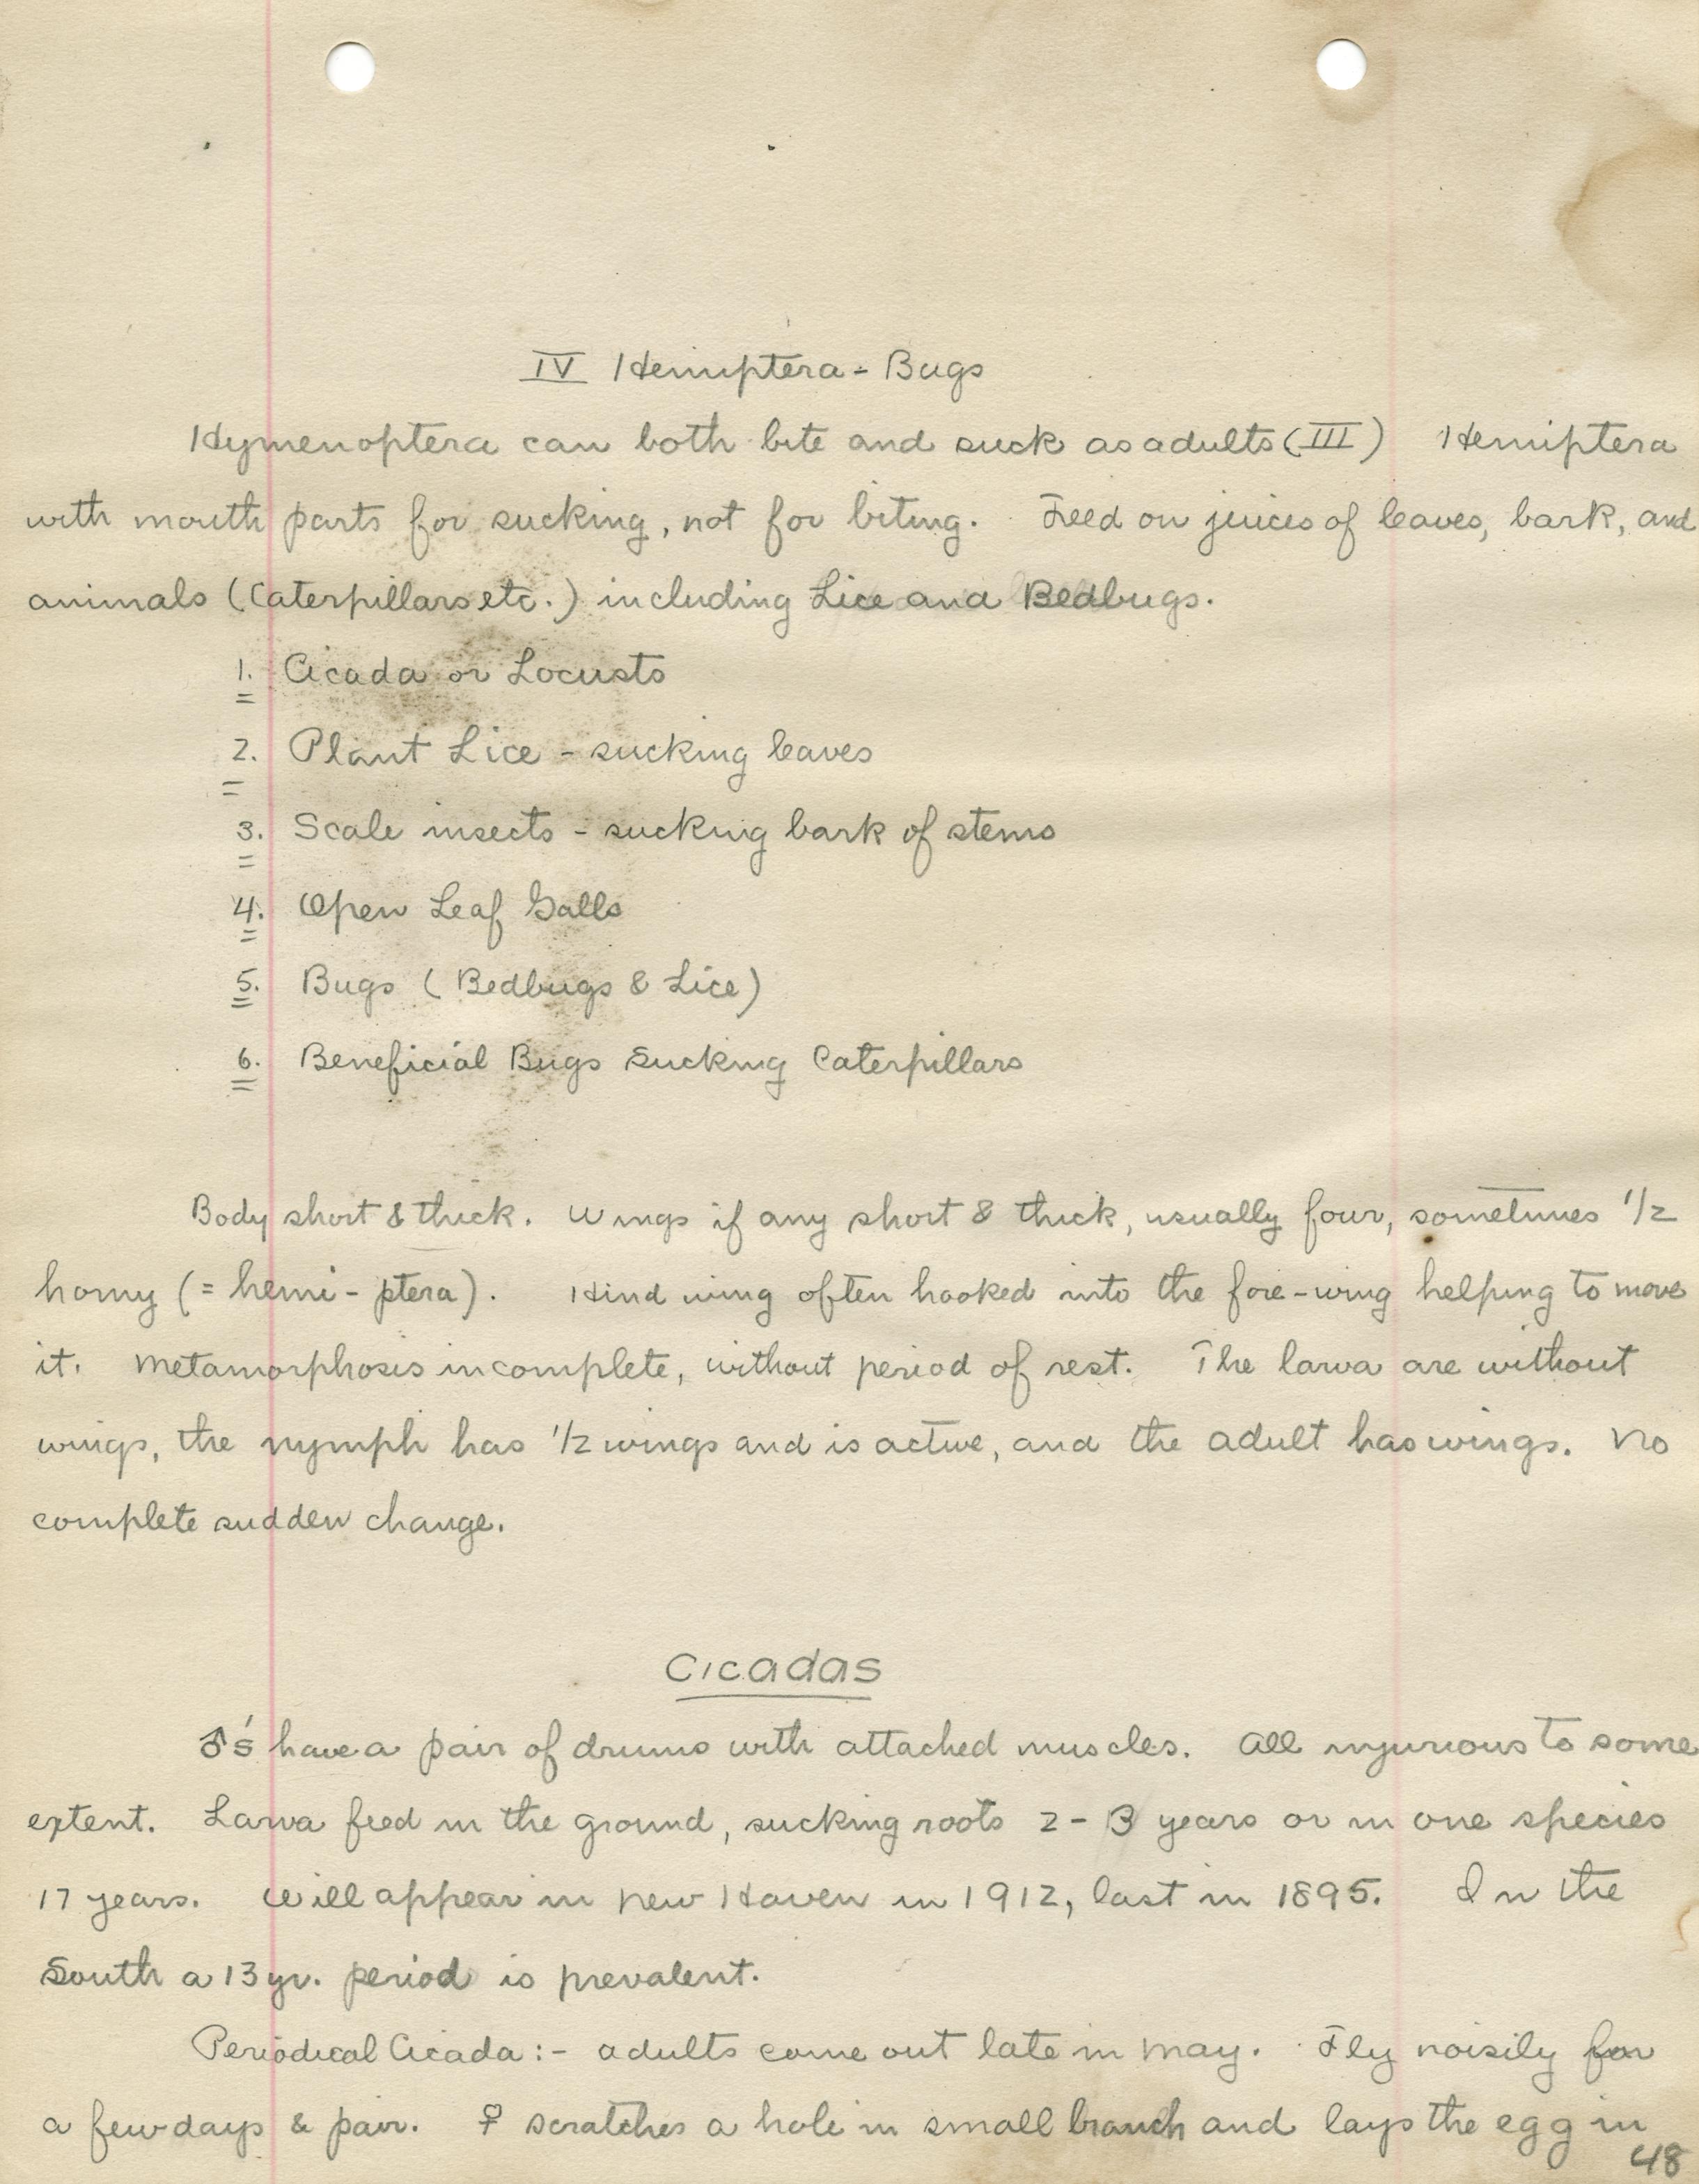 IV Hemiptera - Bugs
Hymenoptera can both bite and suck as adults (III) Hemiptera
with mouth parts for sucking, not for biting. Feed on juices of leaves, bark, and
animals (Caterpillars etc.) including Lice and Bedbugs.
1. Cicada or Locusts
2. Plant Lice - sucking leaves
3. Scale insects - sucking bark of stems
4. Open Leaf Galls
5. Bugs (Bedbugs & Lice)
6. Beneficial Bugs Sucking Caterpillars
Body short & thick. Wings if any short & thick, usually four, sometimes 1/2
horny (= hemi - ptera). Hind wing often hooked into the fore-wing helping to move
it. Metamorphosis incomplete, without period of rest. The larva are without
wings, the nymph has 1/2 wings and is active, and the adult has wings. No
complete sudden change.
Cicadas
♂'s have a pair of drums with attached muscles. All injurious to some
extent. Larva feed in the ground, sucking roots 2 - 3 years or in one species
17 years. Will appear in New Haven in 1912, last in 1895. In the
South a 13 yr. period is prevalent.
Periodical Cicada :- adults come out late in May. Fly noisily for
a few days & pair. ♀ scratches a hole in small branch and lays the egg in
48